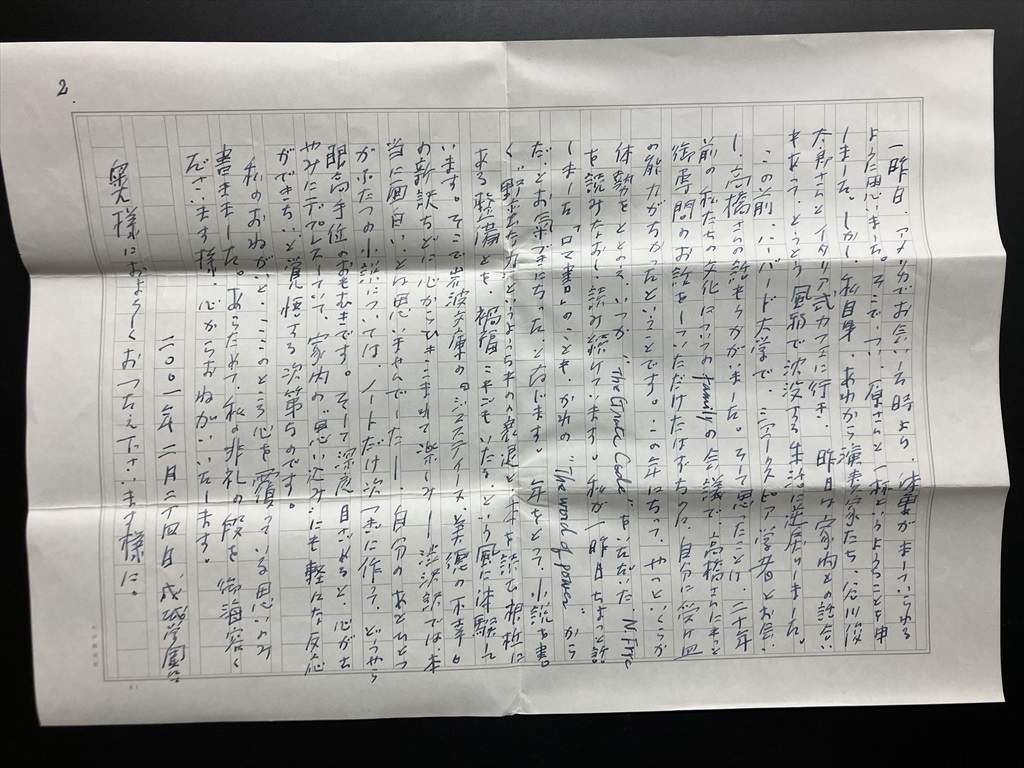 2.
一昨日、アメリカでお会いした時より、体重がましていられる
ように思いました。そこで、つい、原さんと一杯というようなことを申
しました。しかし私自身、あれから演奏家たち、谷川俊
太郎さんとイタリア式カフェに行き、昨日は家内との話合い
もあって、とうとう風邪で沈没する生活に逆戻りしました。
この前、ハーバード大学で、シェークスピア学者とお会い
し、高橋さんの話もうかがいました。そして思ったことは、二十年
前の私たちの文化についてのfamilyの会議で、高橋さんにもっと
御専門のお話をしていただけたはずなのに、自分に受け皿
の能力がなかったということです。この年になって、やっといくらか
体勢をととのえ、いつか "The Great Code" をいただいた N. Frye
を読みなおし、読み続けています。私が一昨日ちょっと話
しました「ロマ書」のことも、かれの "The word of power" から
だとお気づきになった、と存じます。年をとって、小説を書
く というようなものの衰退と、本を読む根柢に
ある とも、禍福こもごもいたる、という風に体験して
います。そこで岩波文庫の『ジュスティーヌ、美徳の不幸』
の新訳などに心からひきこまれて楽しみ―渋沢訳では、本
当に面白いとは思いませんでした―、自分のあとひとつ
かふたつの小説については、ノートだけ次つぎに作って、どうやら
眼高手低のおもむきです。そして深夜目ざめると、心が
やみにデプレスしていて、家内の「思い込み」にも 反応
ができない、と覚悟する次第なのです。
私のおねがいと、ここのところ心を覆っている思いのみ
書きました。あらためて、私の非礼の段を御海容く
ださいます様、心からおねがいいたします。
二〇〇一年二月二十四日、成城学園に
奥様によろしくおつたえ下さいます様に。